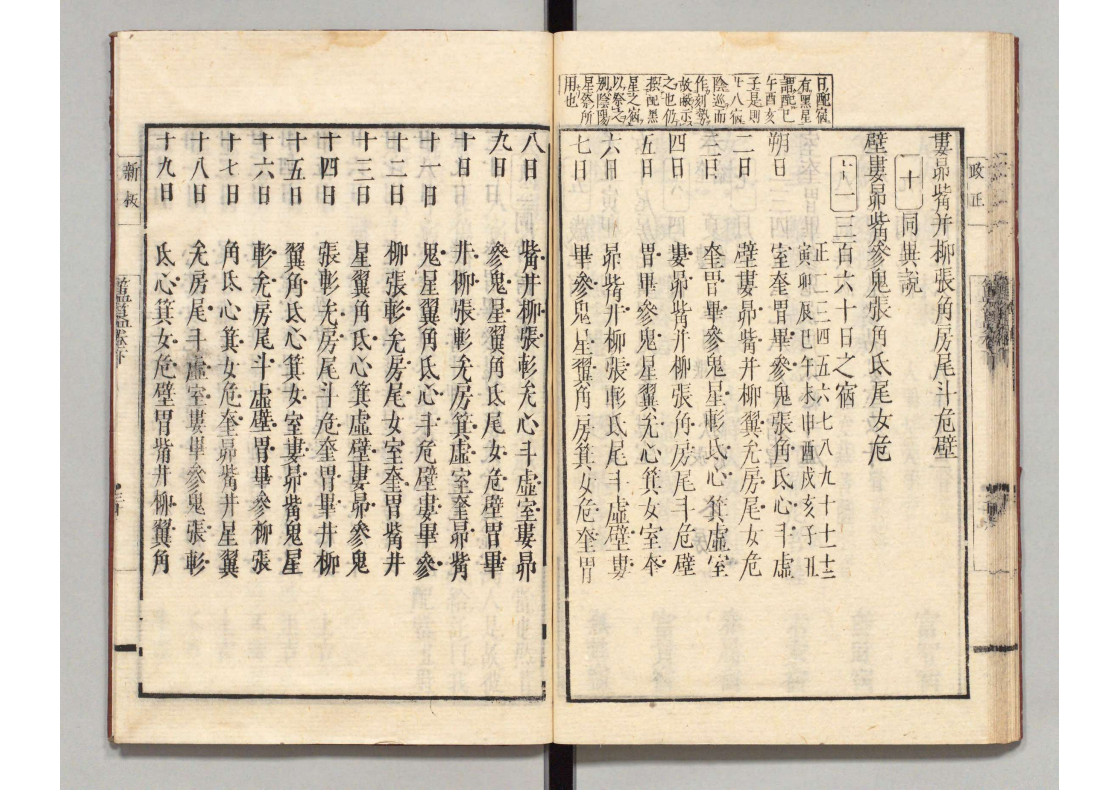 日配宿
有黑星
謂配巳
午酉亥
子是則
廿八宿
陰巡而
作刻勢
故蔽示
之也位
按配黑
星之宿
以祭之
別陰陽
星祭所
用也
改正
婁昴觜井柳張角房尾斗危壁
十 同異說
壁婁昴觜參鬼張角氐尾女危
三百六十日之宿
正二三四五六七八九十十一十二
寅卯辰巳午未申酉戌亥子丑
朔日 室奎胃畢參鬼張角氐心斗虛
二日 壁婁昴觜井柳翼亢房尾女危
三日 奎胃畢參鬼星軫氐心箕虛室
四日 婁昴觜井柳張角房尾斗危壁
五日 胃畢參鬼星翼亢心箕女室奎
六日 昴觜井柳張軫氐尾斗虛壁婁
七日 畢參鬼星翼角房箕女危奎胃
八日 觜井柳張軫亢心斗虛室婁昴
九日 參鬼星翼角氐尾女危壁胃畢
十日 井柳張軫亢房箕虛室奎昴觜
十一日 鬼星翼角氐心斗危壁婁畢參
十二日 柳張軫亢房尾女室奎胃觜井
十三日 星翼角氐心箕虛壁婁昴參鬼
十四日 張軫亢房尾斗危奎胃畢井柳
十五日 翼角氐心箕女室婁昴觜鬼星
十六日 軫亢房尾斗虛壁胃畢參柳張
十七日 角氐心箕女危奎昴觜井星翼
十八日 亢房尾斗虛室婁畢參鬼張軫
十九日 氐心箕女危壁胃觜井柳翼角
新板